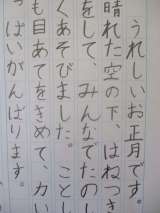 うれしいお正月です。
晴れた空の下、はねつき
をして、みんなでたのし
くあそびました。ことし
も目あてをきめて、力い
っぱいがんばります。